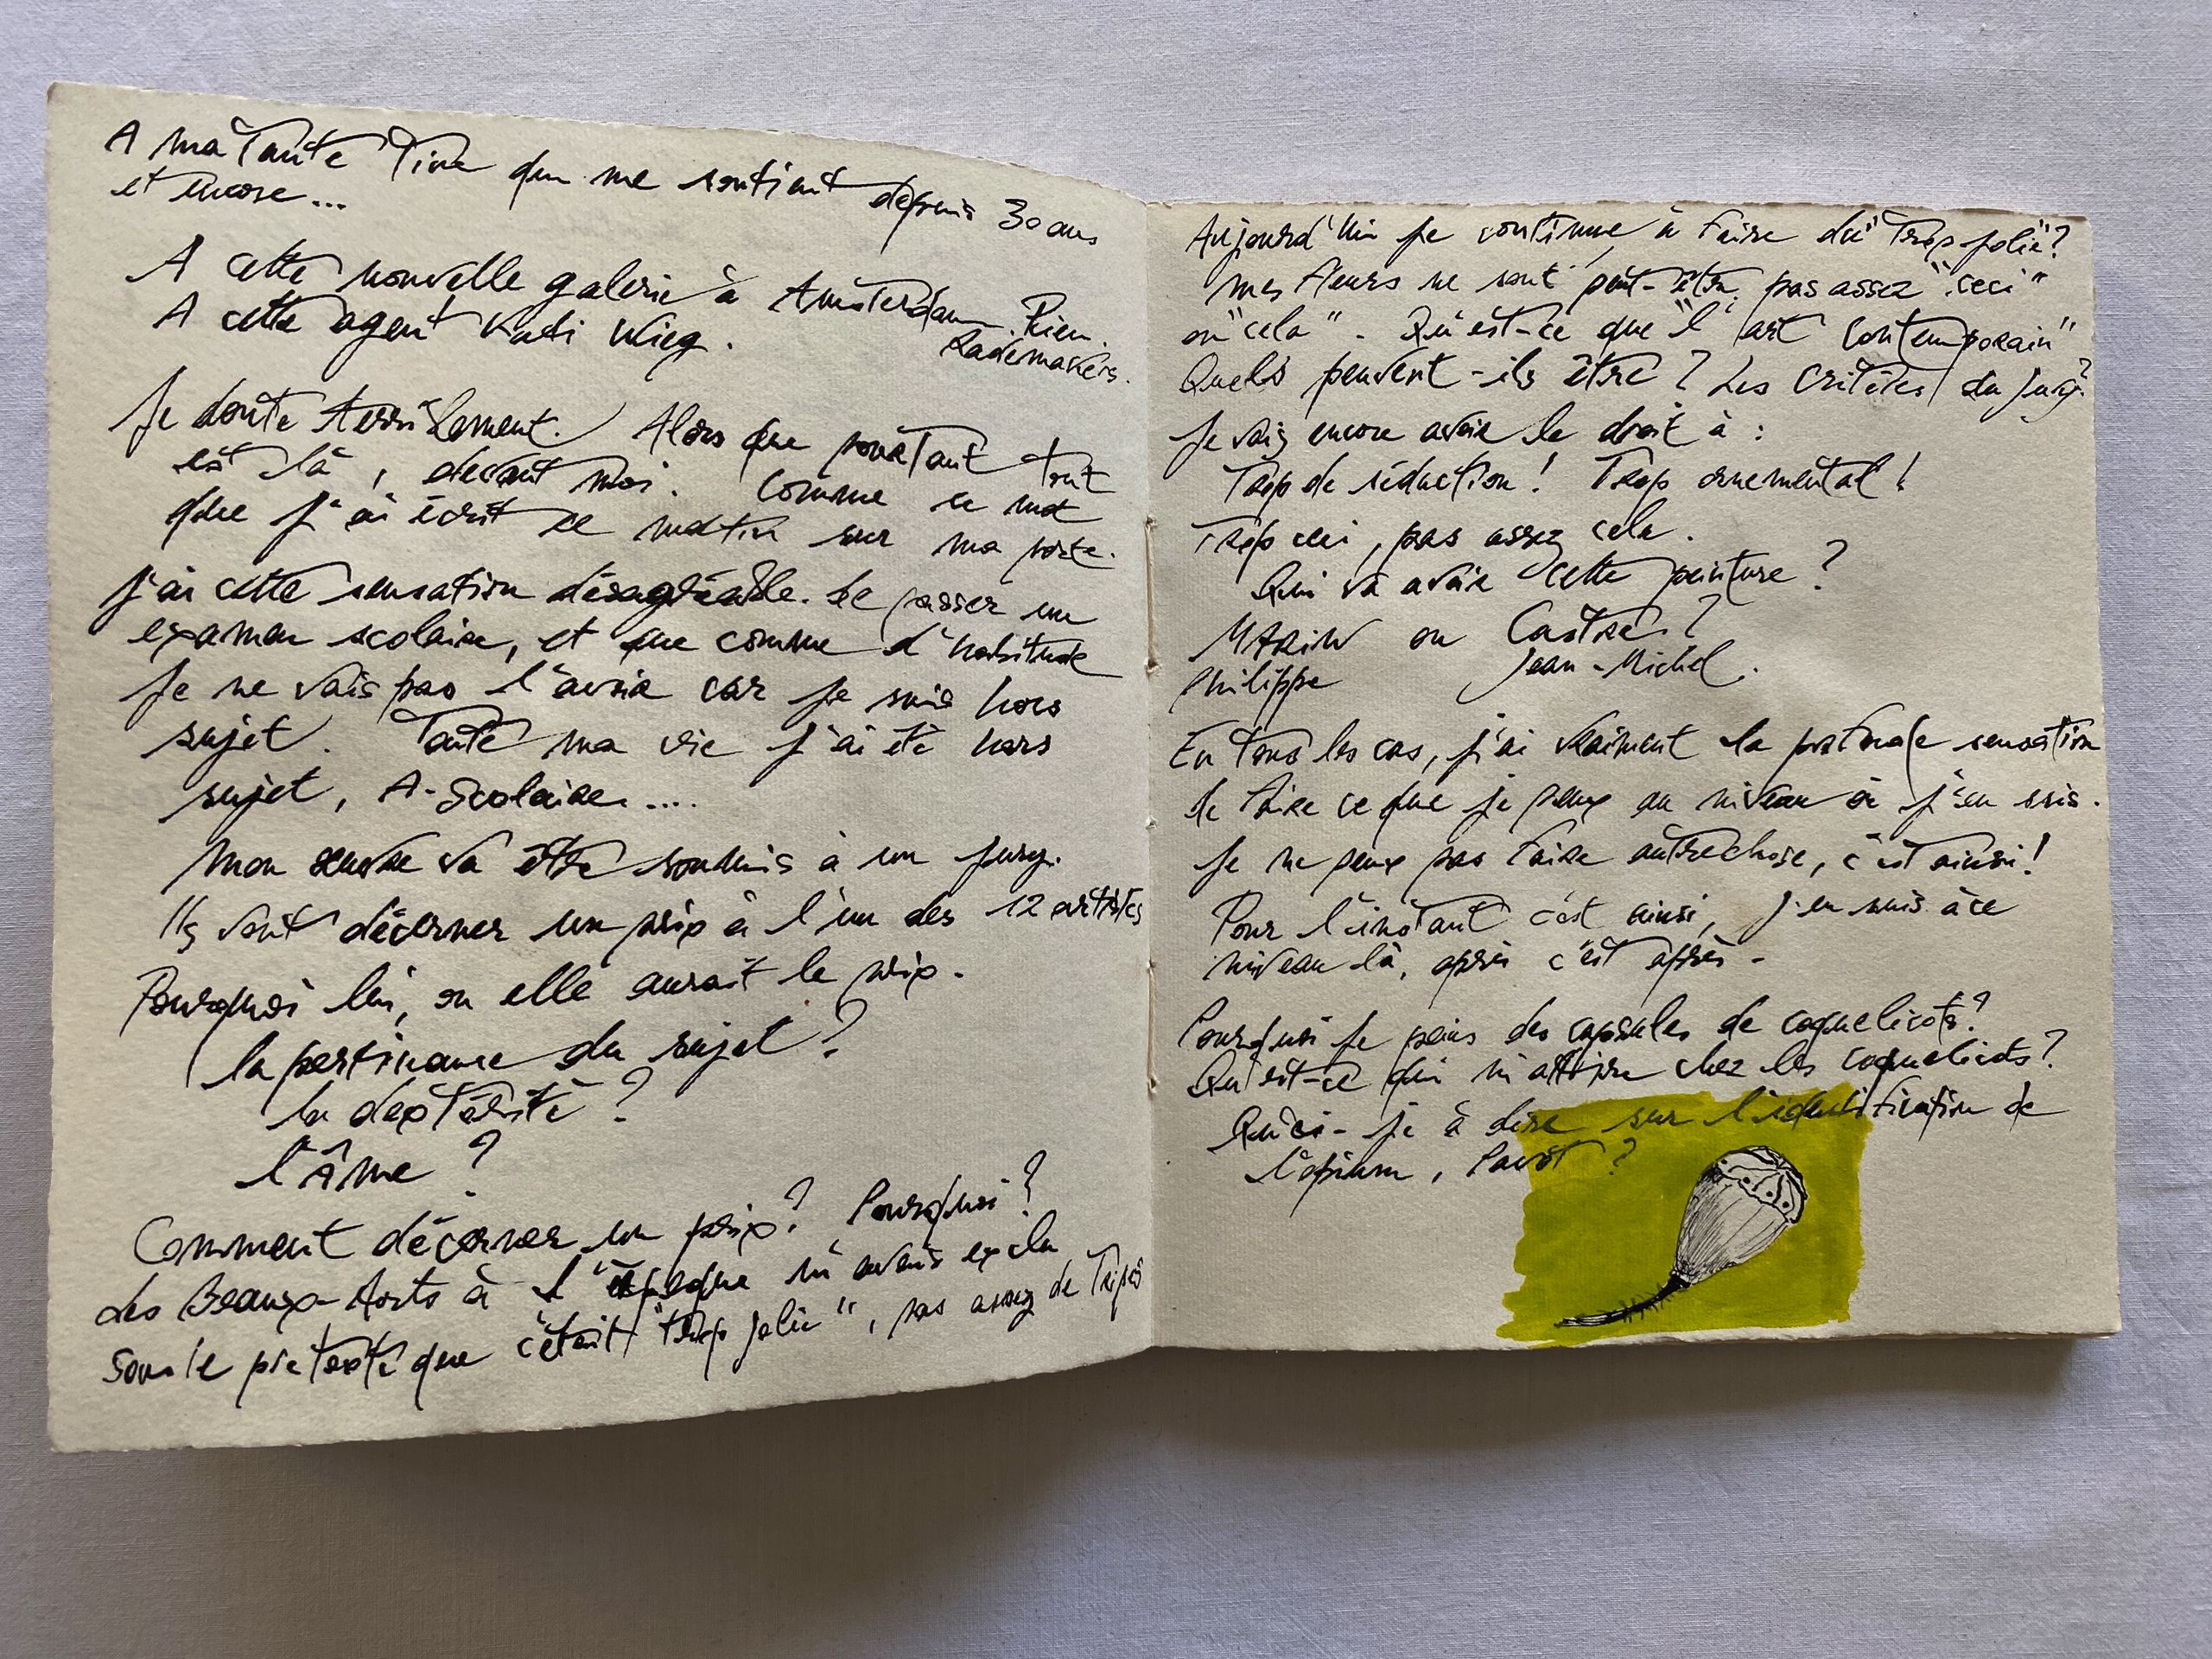 A ma Tante Tine qui me soutient depuis 30 ans
et encore...
A cette nouvelle galerie à Amsterdam. Rien
Rademakers.
A cette agent Kati Wieg.
Je doute terriblement. Alors que pourtant tout
est là, devant moi. Comme ce mot
que j'ai écrit ce matin sur ma porte.
J'ai cette sensation désagréable. De passer un
examen scolaire, et que comme d'habitude
je ne vais pas l'avoir car je suis hors
sujet. Toute ma vie j'ai été hors
sujet, A-Scolaire....
Mon œuvre va être soumis à un jury.
Ils vont décerner un prix à l'un des 12 artistes
Pourquoi lui, ou elle aurait le prix.
la pertinance du sujet?
la dextérité?
l'âme?
Comment décerner un prix? Pourquoi?
des Beaux-Arts à l'époque m'avais exclu
sous le pretexte que c'était "trop jolie", pas assez de Tripes
Aujourd'hui je continue à faire du "Trop jolie"?
mes fleurs ne sont peut-être pas assez "ceci"
ou "cela". Qu'est-ce que "l'art contemporain"
Quels peuvent-ils être? Les critères du jury?
Je vais encore avoir le droit à :
Trop de séduction! Trop ornemental!
Trop ceci, pas assez cela.
Qui va avoir cette peinture?
MARIN ou Castre?
Philippe Jean-Michel.
En tous les cas, j'ai vraiment la profonde sensation
de faire ce que je peux au niveau où j'en suis.
Je ne peux pas faire autrechose, c'est ainsi!
Pour l'instant c'est ainsi, j'en suis à ce
niveau là, après c'est après.
Pourquoi je peins des capsules de coquelicots?
Qu'est-ce qui m'attire chez les coquelicots?
Qu'ai-je à dire sur l'identification de
l'opium, Pavot?